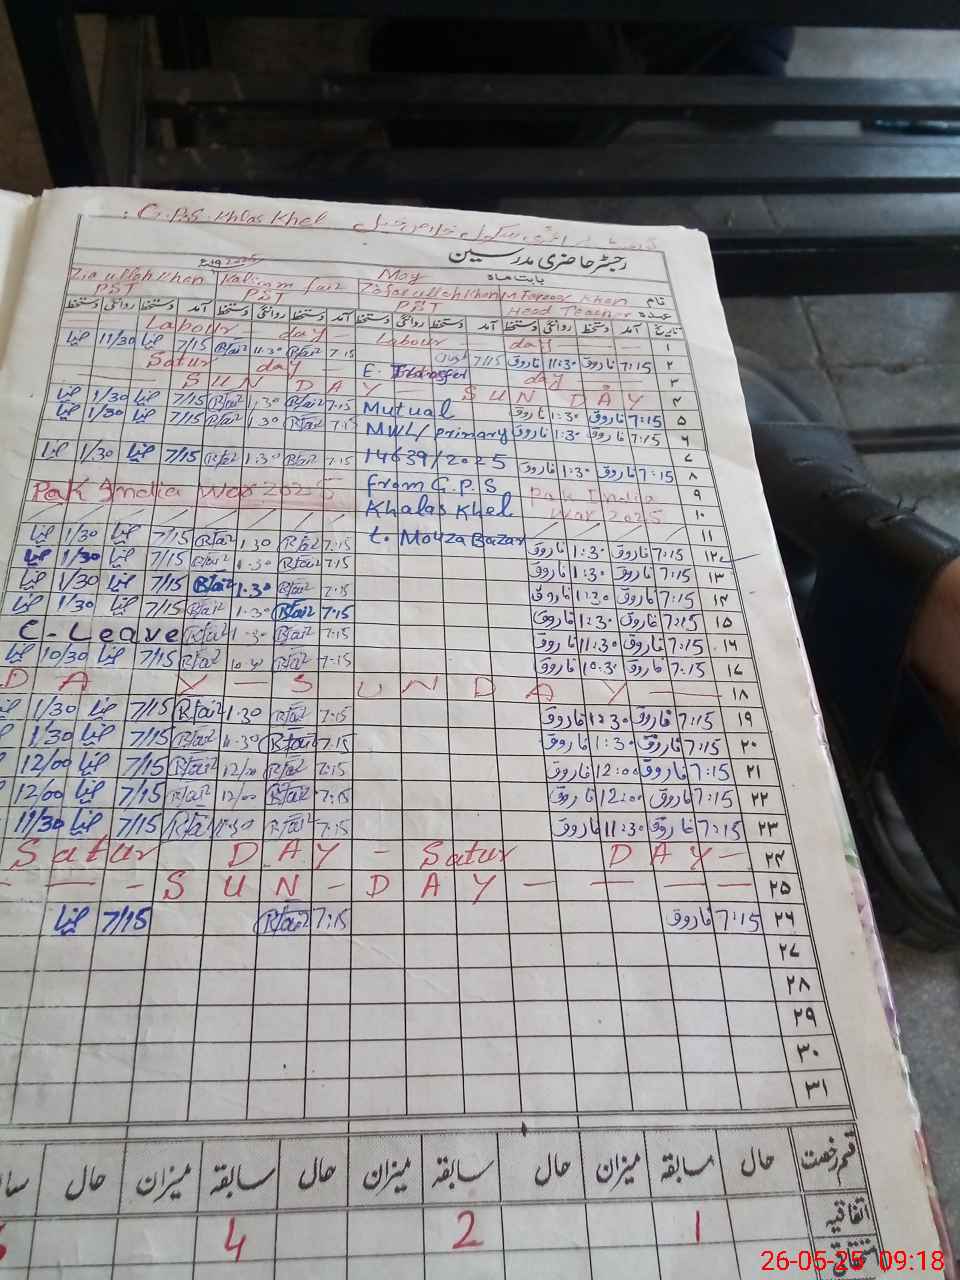 G.P.S Khlas Khel
رجسٹر حاضری مدرسین
بابت ماہ May 2025
نام Farooq Khan Zafarullah Khan Zia ullah Khan
عہدہ Head Teacher PST PST PST
تاریخ آمد دستخط روانگی دستخط آمد دستخط روانگی دستخط آمد دستخط روانگی دستخط دستخط روانگی دستخط
۱ Labour day Labour day
۲ 7:15 فاروق 11:30 فاروق 7/15 7:15 Rfai2 11:30 Rfai2 7/15 ضیا 11/30 ضیا
۳ Satur day day
۴ SUN DAY SUN DAY
۵ 7:15 فاروق 1:30 فاروق Mutual 7:15 Rfai2 1:30 Rfai2 7/15 ضیا 1/30 ضیا
۶ 7:15 فاروق 1:30 فاروق MWL/primary 7:15 Rfai2 1:30 Rfai2 7/15 ضیا 1/30 ضیا
۷ 14639/2025
۸ 7:15 فاروق 1:30 فاروق from G.P.S 7:15 Rfai2 1:30 Rfai2 7/15 ضیا 1/30 ضیا
۹ Pak India Khalas Khel Pak India War 2025
۱۰ War 2025
۱۱ t. Mouza Bazar
۱۲ 7:15 فاروق 1:30 فاروق 7:15 Rfai2 1:30 Rfai2 7/15 ضیا 1/30 ضیا
۱۳ 7:15 فاروق 1:30 فاروق 7:15 Rfai2 1:30 Rfai2 7/15 ضیا 1/30 ضیا
۱۴ 7:15 فاروق 1:30 فاروق 7:15 Rfai2 1:30 Rfai2 7/15 ضیا 1/30 ضیا
۱۵ 7:15 فاروق 1:30 فاروق 7:15 Rfai2 1:30 Rfai2 7/15 ضیا 1/30 ضیا
۱۶ 7:15 فاروق 11:30 فاروق 7:15 Rfai2 1:30 Rfai2 C-Leave
۱۷ 7:15 فاروق 10:30 فاروق 7:15 Rfai2 Rfai2 7/15 ضیا 10/30 ضیا
۱۸ DAY — SUNDAY —
۱۹ 7:15 فاروق 1:30 فاروق 7:15 Rfai2 1:30 Rfai2 7/15 ضیا 1/30
۲۰ 7:15 فاروق 1:30 فاروق 7:15 Rfai2 Rfai2 7/15 ضیا 1/30
۲۱ 7:15 فاروق 12:00 فاروق 7:15 Rfai2 12/00 Rfai2 7/15 ضیا 12/00
۲۲ 7:15 فاروق 12:00 فاروق 7:15 Rfai2 12/00 Rfai2 7/15 ضیا 12/00
۲۳ 7:15 فاروق 11:30 فاروق 7:15 Rfai2 11:30 Rfai2 7/15 ضیا 11/30
۲۴ Satur DAY - Satur DAY —
۲۵ — — - SUN - DAY — — — —
۲۶ 7:15 فاروق 7:15 Rfai2 7/15 ضیا
۲۷
۲۸
۲۹
۳۰
۳۱
قسم رخصت حال سابقہ میزان حال سابقہ میزان حال سابقہ میزان حال
اتفاقیہ 1 2 4
26-05-25 09:18